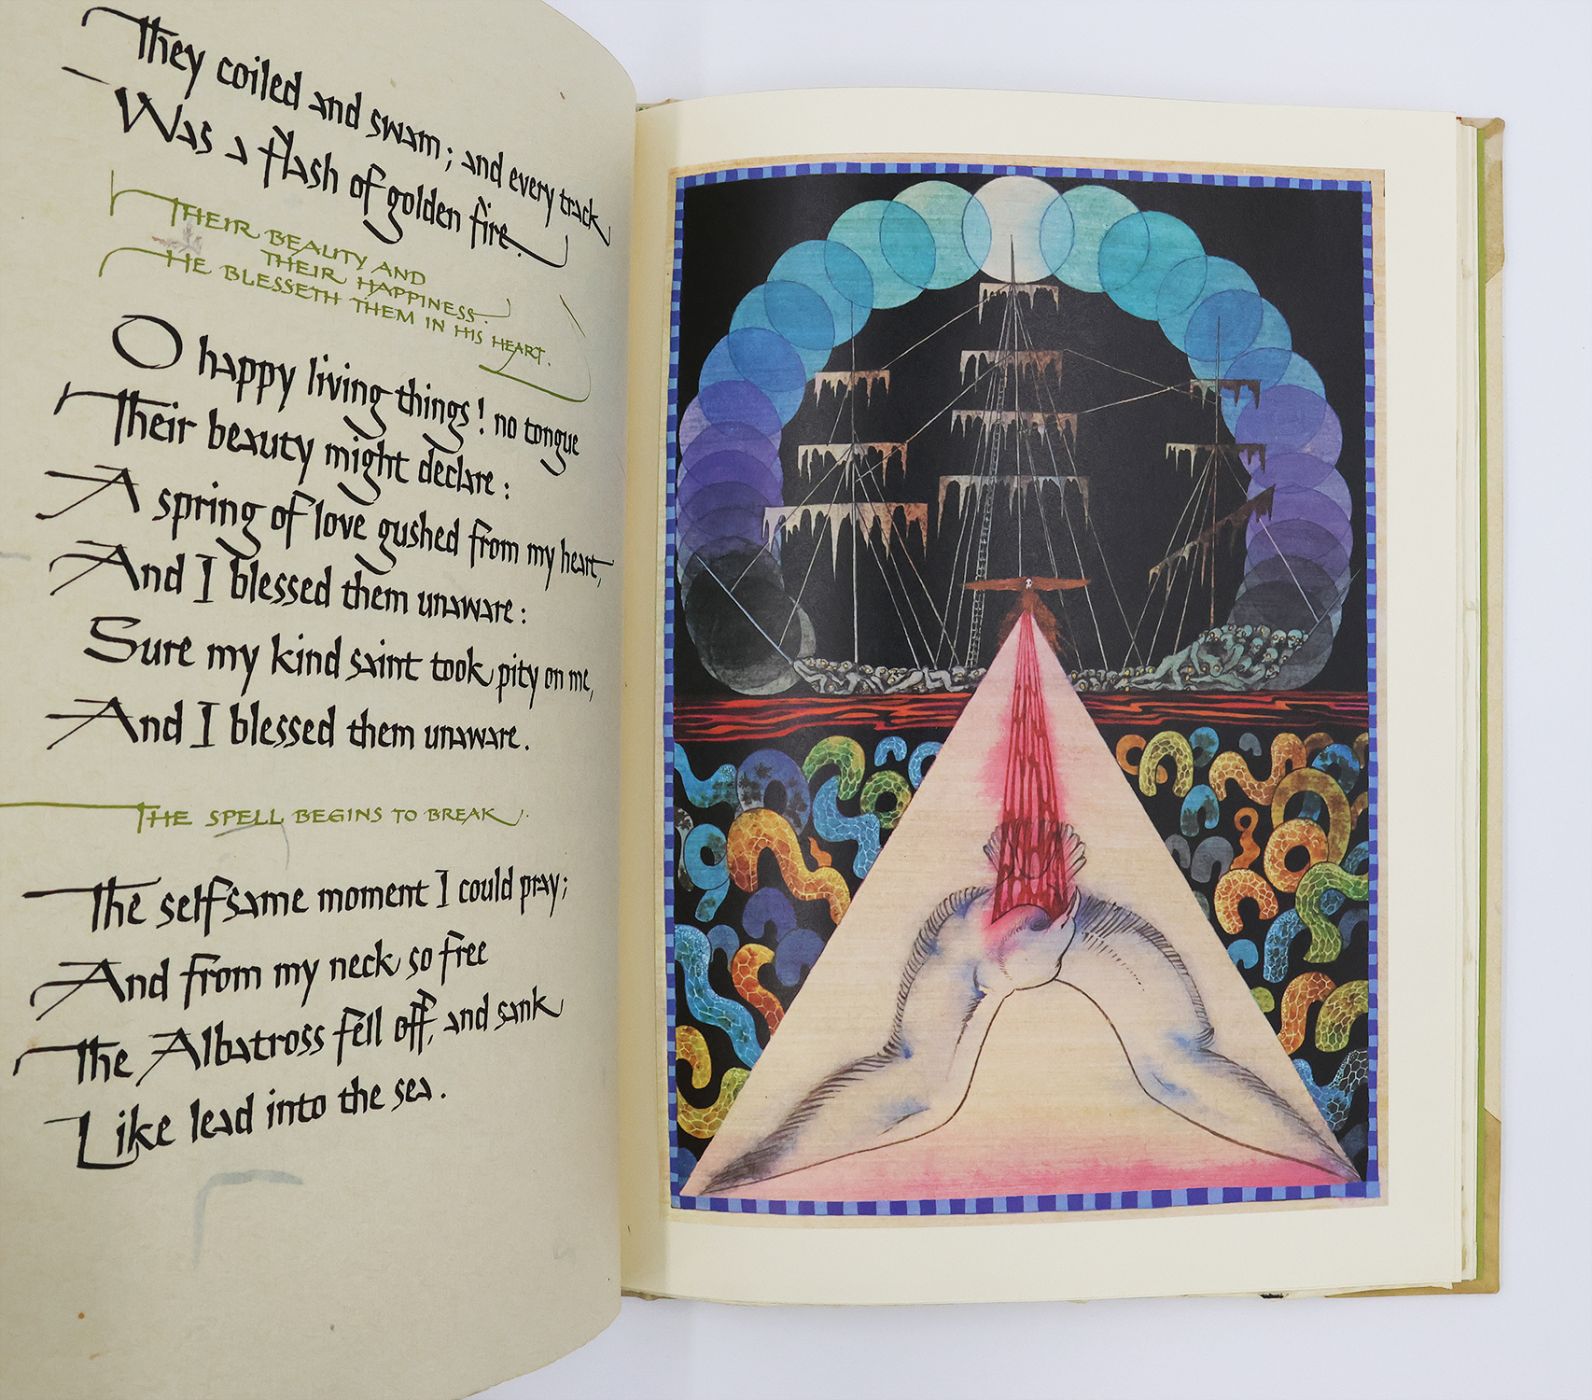 They coiled and swam; and every track
Was a flash of golden fire.
THEIR BEAUTY AND
THEIR HAPPINESS.
HE BLESSETH THEM IN HIS HEART.
O happy living things! no tongue
Their beauty might declare:
A spring of love gushed from my heart,
And I blessed them unaware:
Sure my kind saint took pity on me,
And I blessed them unaware.
THE SPELL BEGINS TO BREAK.
The selfsame moment I could pray;
And from my neck so free
The Albatross fell off, and sank
Like lead into the sea.